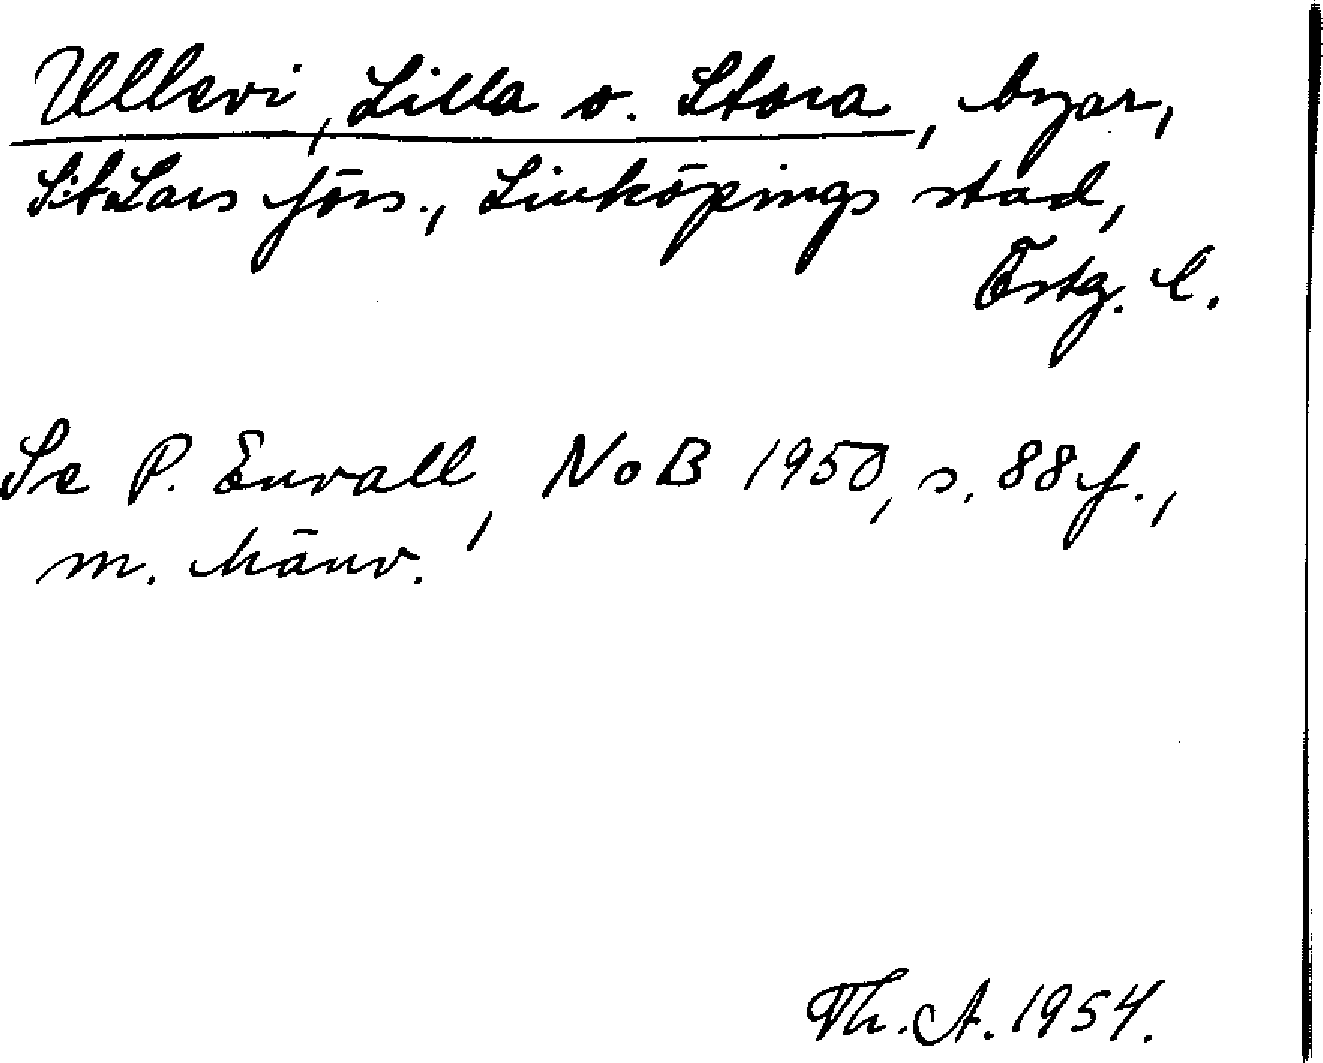 Ullevi, Lilla o. Stora, byar,
S:t Lars förs., Linköpings stad,
Östg. l.
Se P. Envall, NoB 1950, s. 88 f.,
m. hänv.
Th. A. 1954.